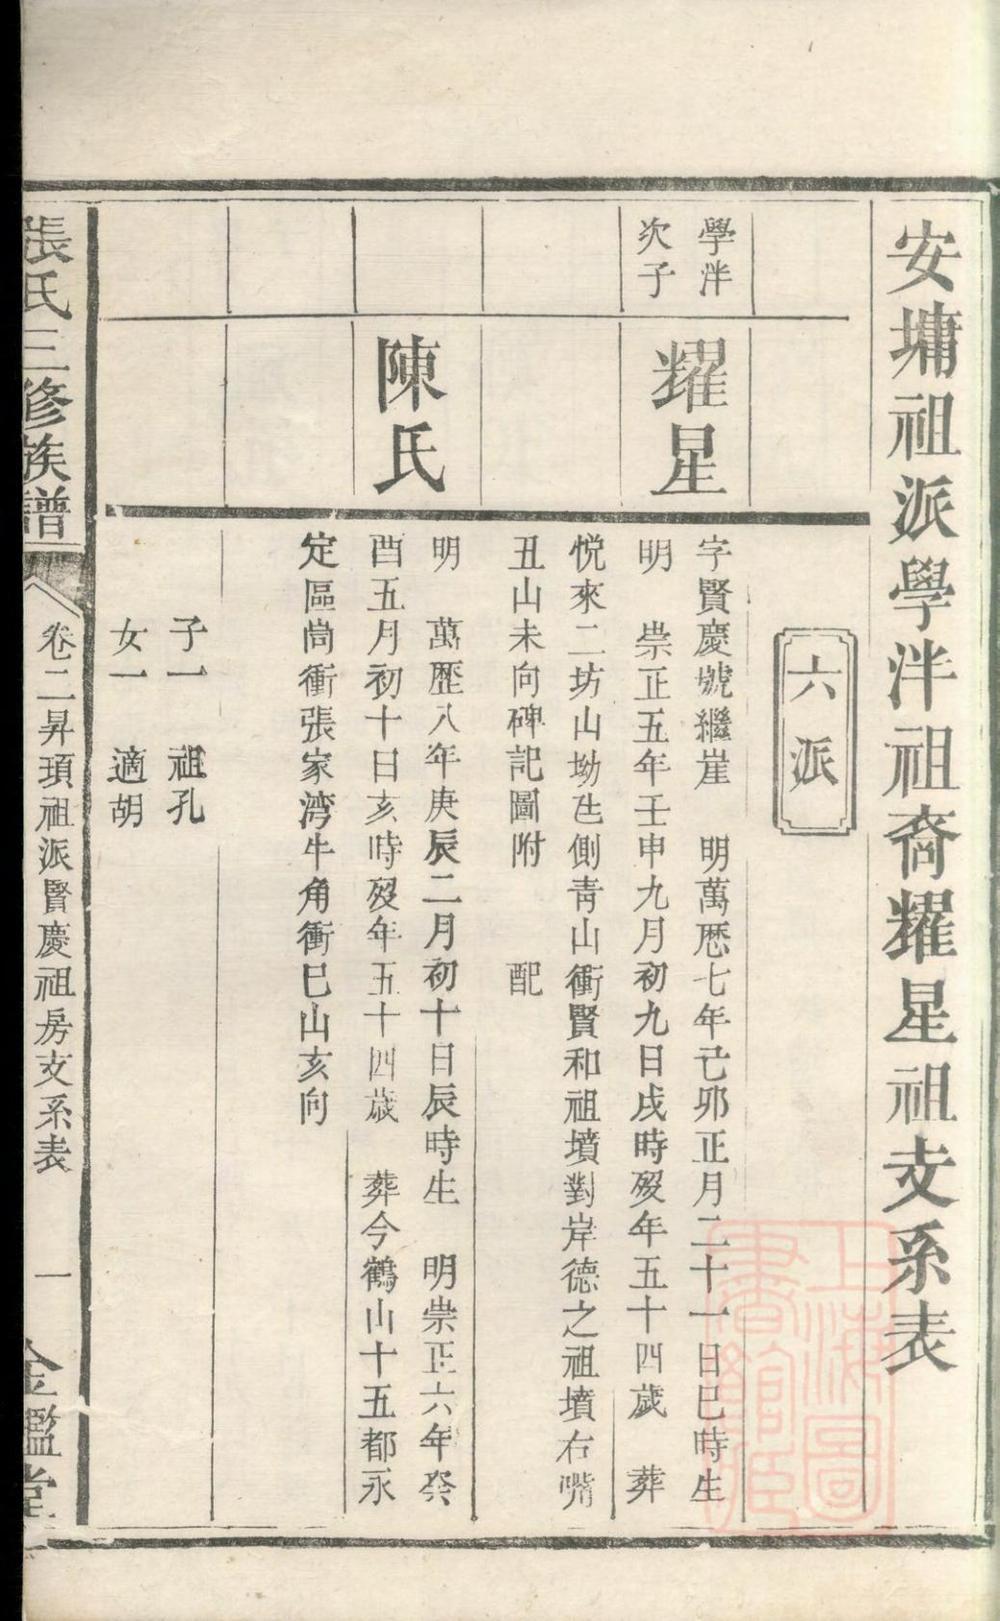 安墉祖派學泮祖裔耀星祖支系表
六派
學泮
次子
耀星
字賢慶號繼崖 明萬歷七年己卯正月二十一日巳時生
明 崇正五年壬申九月初九日戌時歿年五十四歲 葬
悅來二坊山坳屯側青山衝賢和祖墳對岸德之祖墳右嘴
丑山未向碑記圖附 配
陳氏
明 萬歷八年庚辰二月初十日辰時生 明崇正六年癸
酉五月初十日亥時歿年五十四歲 葬今鶴山十五都永
定區峝衝張家湾牛角衝巳山亥向
子一 祖孔
女一 適胡
張氏三修族譜
卷二昇頊祖派賢慶祖房支系表
一
金鑑堂
上海圖
書館藏